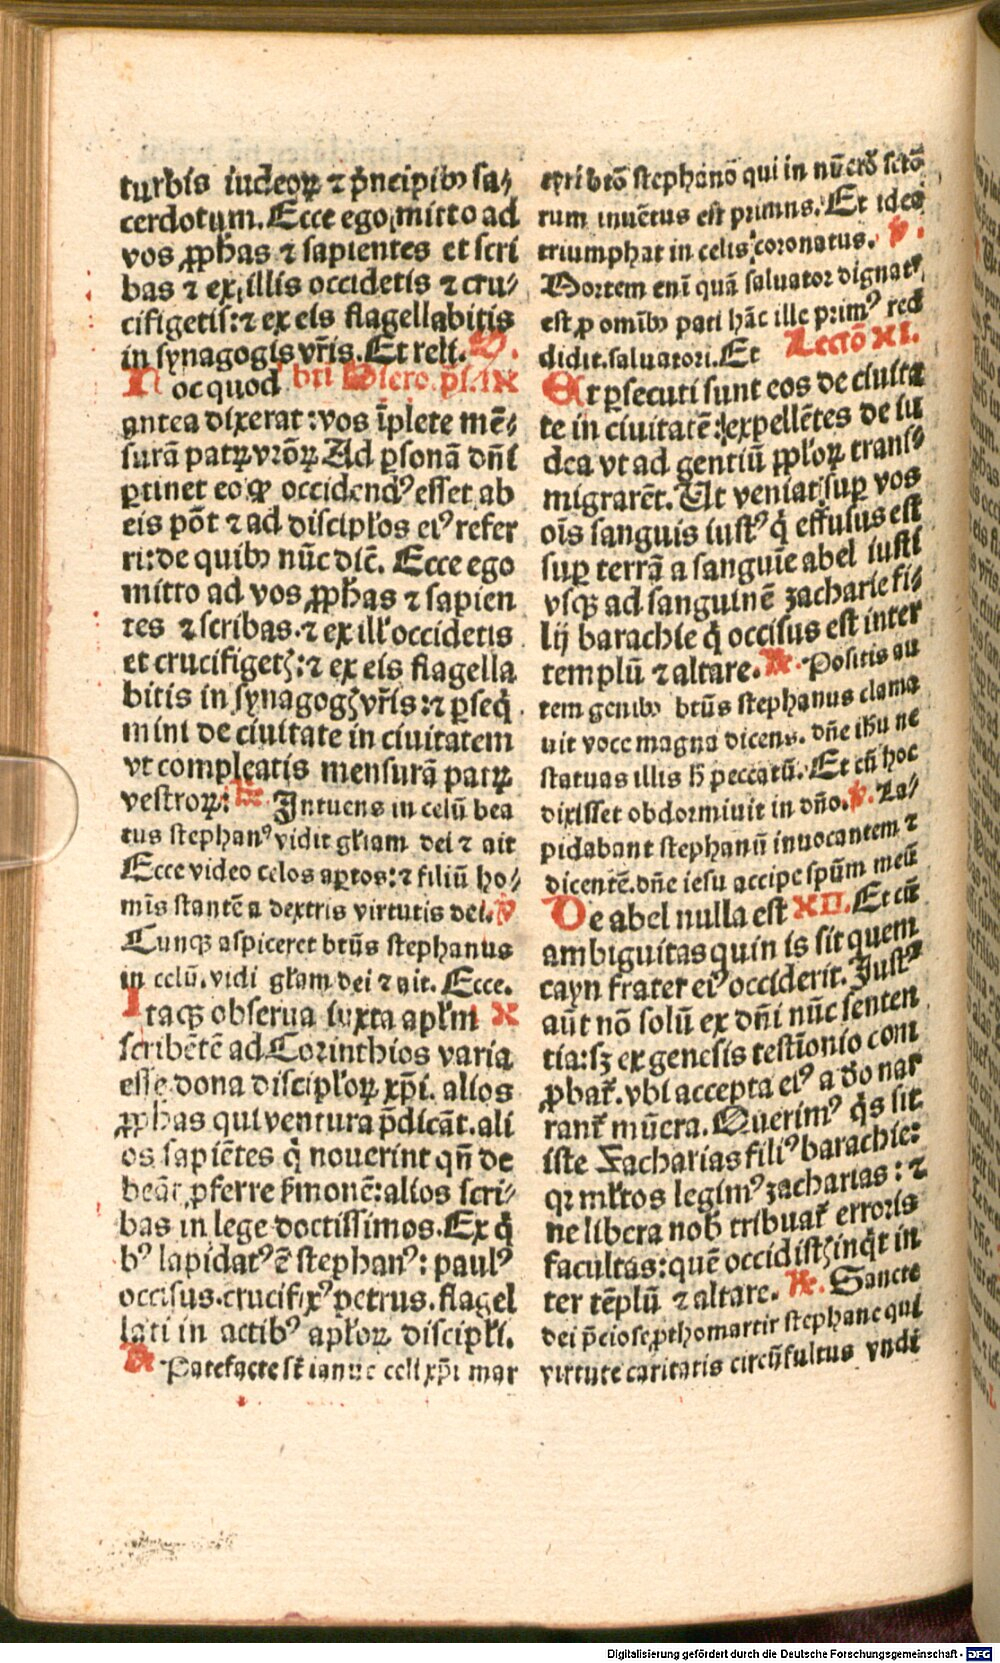 turbis iudeoꝝ ⁊ p̄ncipibꝯ sa⸗
cerdotum. Ecce ego mitto ad
vos ꝓphas ⁊ sapientes et scri
bas ⁊ ex illis occidetis ⁊ cru⸗
cifigetis: ⁊ ex eis flagellabitis
in synagogis vr̄is. Et reli.
Hoc quod bti Hiero. p̄l. ix
antea dixerat: vos īplete mē⸗
surā patꝝ vr̄oꝝ Ad ꝑsonā dn̄i
ꝑtinet eo ꝙ occidendꝰ esset ab
eis pōt ⁊ ad discipl̵os eiꝰ refer
ri: de quibꝯ nūc dic̄. Ecce ego
mitto ad vos ꝓph̄as ⁊ sapien
tes ⁊ scribas. ⁊ ex ill̵ occidetis
et crucifigetꝭ: ⁊ ex eis flagella
bitis in synagogꝭ vr̄is: ⁊ ꝑseq̄
mini de ciuitate in ciuitatem
vt compleatis mensurā patꝝ
vestroꝝ: ℟ Intuens in celū bea
tus stephanꝰ vidit gl̵iam dei ⁊ ait
Ecce video celos aꝑtos: ⁊ filiū ho⸗
mīs stantē a dextris virtutis dei. ℣
Cunqꝫ aspiceret btūs stephanus
in celū. vidi gl̵am dei ⁊ ait. Ecce.
Itaqꝫ obserua iuxta apl̵m X
scribētē ad Corinthios varia
esse dona discipl̵oꝝ xp̄i. alios
ꝓphas qui ventura p̄dicāt. ali
os sapiētes q̄ nouerint qn̄ de
beāt ꝓferre s̄monē: alios scri⸗
bas in lege doctissimos. Ex q̄
bꝰ lapidatꝰ ē stephanꝰ: paulꝰ
occisus. crucifixꝰ petrus. flagel
lati in actibꝰ apl̵oꝝ discipl̵i.
℟ Patefacte st̄ ianue celi xp̄i mar
tyri btō stephano qui in nūero sctō
rum inuētus est primus. Et ideo
triumphat in celis coronatus. ℣.
Mortem eni quā saluator dignatꝰ
est ꝓ omibꝯ pati hāc ille primꝰ red
didit saluatori. Et Lectō XI.
Et ꝑsecuti sunt eos de ciuita
te in ciuitatē: expellētes de iu
dea vt ad gentiū ppl̵oꝝ trans⸗
migrarēt. Ut veniat suꝑ vos
oīs sanguis iustꝰ q̄ effusus est
suꝑ terrā a sanguīe abel iusti
vsqꝫ ad sanguinē zacharie fi⸗
lij barachie q̄ occisus est inter
templū ⁊ altare. ℟. Positis au
tem genibꝯ btūs stephanus clama
uit voce magna dicens. dn̄e ih̄u ne
statuas illis h̄ peccatū. Et cū hoc
dixisset obdormiuit in dn̄o. ℣. La⸗
pidabant stephanū inuocantem ⁊
dicentē. dn̄e iesu accipe spūm meū
De abel nulla est XII. Et cū
ambiguitas quin is sit quem
cayn frater eiꝰ occiderit. Justꝰ
aūt nō solū ex dn̄i nūc senten
tia: sꝫ ex genesis testīonio com
ꝓbat̄. vbi accepta eiꝰ a deo nar
rant̄ mūera. Querimꝰ q̄s sit
iste Zacharias filiꝰ barachie:
qꝛ ml̵tos legimꝰ zacharias: ⁊
ne libera nob̄ tribuat̄ erroris
facultas: quē occidistꝭ inq̄t in
ter tēplū ⁊ altare. ℟. Sancte
dei p̄ciose ꝓthomartir stephane qui
virtute caritatis circūfultus vndi
Digitalisierung gefördert durch die Deutsche Forschungsgemeinschaft - DFG